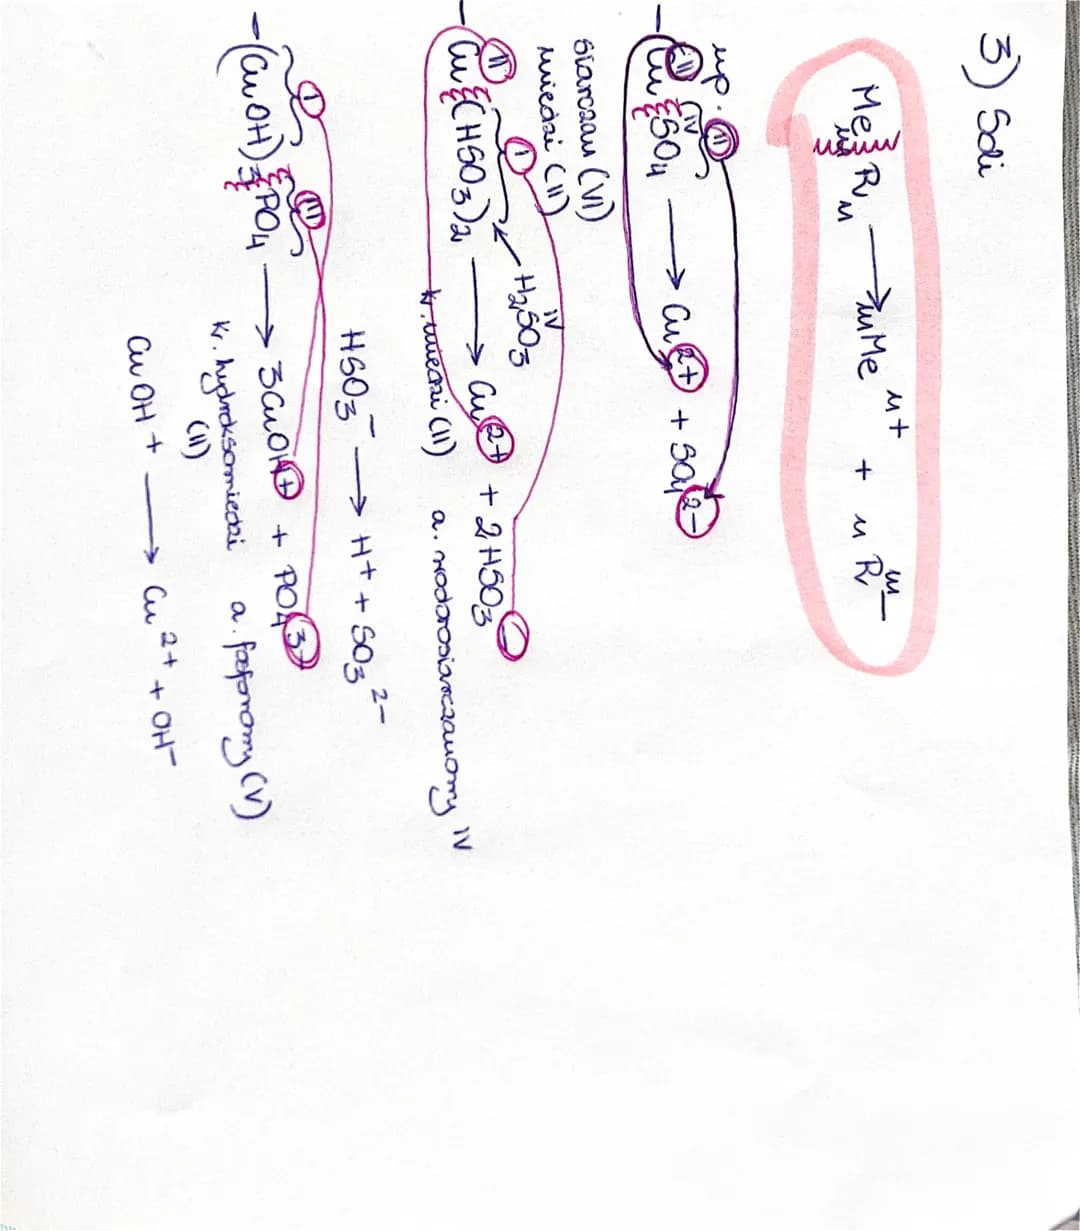 3) Soli
MemRn → mMe n+ + nR m-
np. II IV II
- CuSO4 → Cu2+ + SO4 2-
siarczan (VI)
miedzi (II)
IV
H2SO3
II I
- Cu(HSO3)2 → Cu2+ + 2HSO3 -
kr. miedzi (II) a. wodorosiarczanowy IV
HSO3- → H+ + SO3 2-
I III
- (CuOH)3PO4 → 3CuOH+ + PO4 3-
kr. hydroksomiedzi a. fosforanowy (V)
(II)
CuOH+ → Cu2+ + OH-